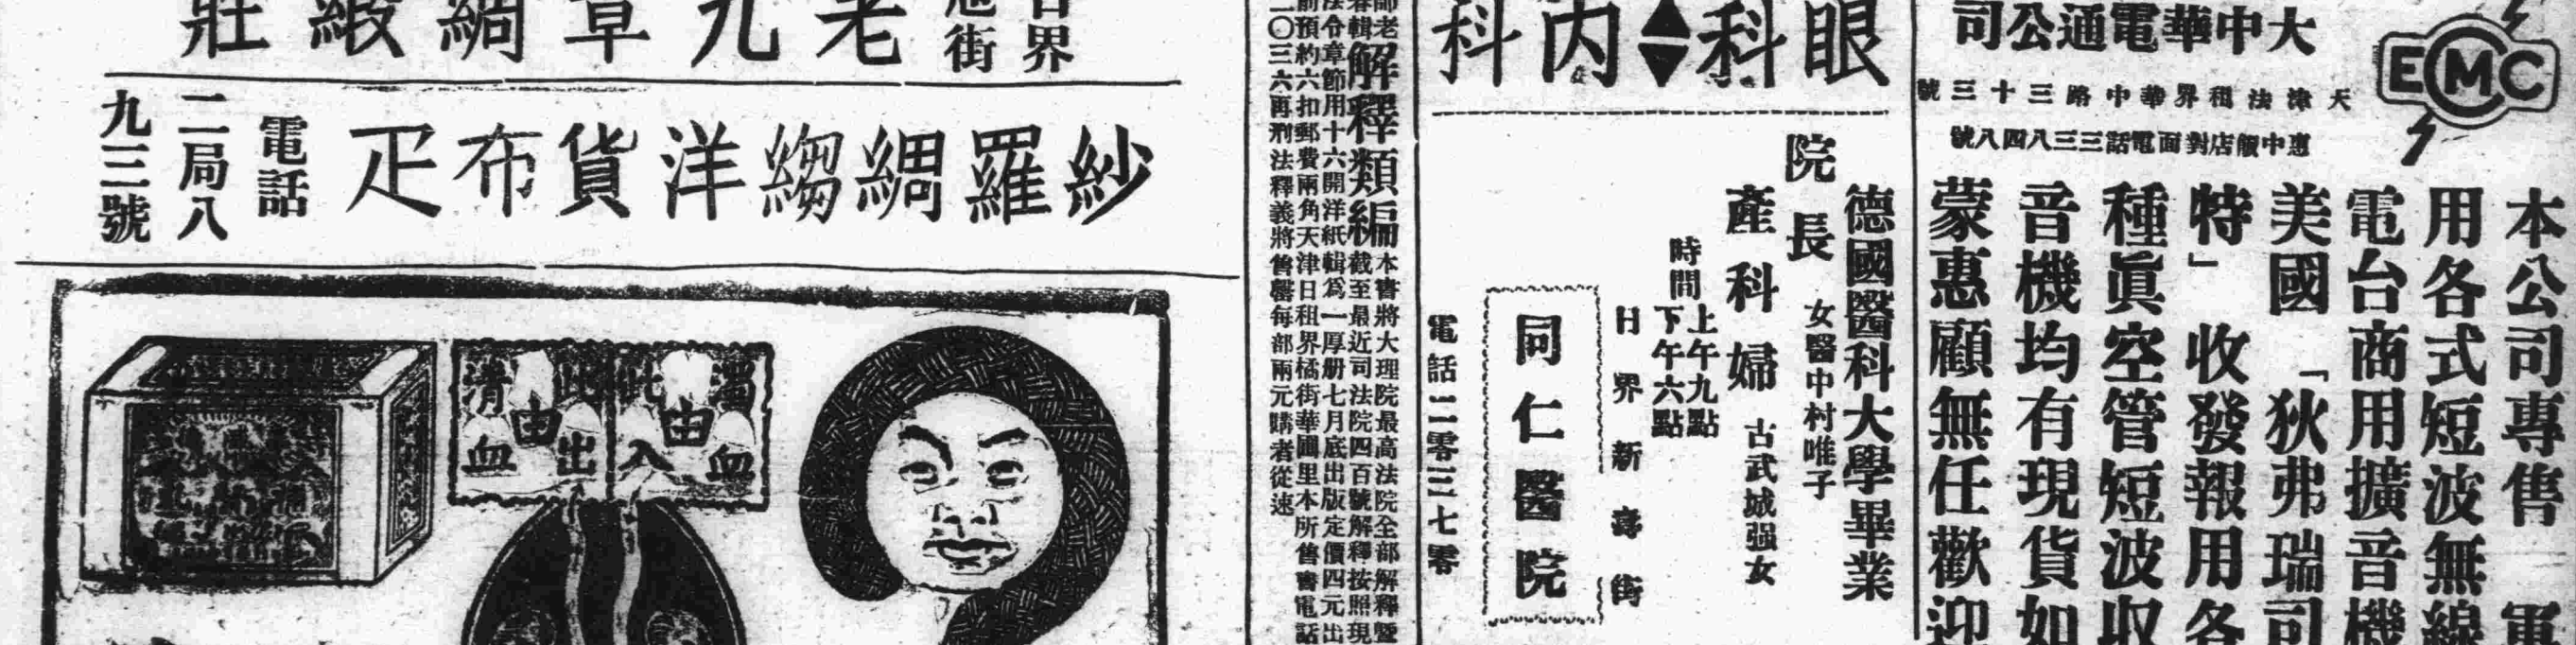 大中華電通公司
天津法租界華中路三十三號
惠中飯店對面電話三三八四八號
EMC
本公司專售 軍
用各式短波無線
電台商用擴音機
美國「狄弗瑞司
特」收發報用各
種眞空管短波收
音機均有現貨如
蒙惠顧無任歡迎
眼科
內科
德國醫科大學畢業
院長
女醫中村唯子
產科婦
古武城强女
時間
上午九點
下午六點
日界新壽街
同仁醫院
電話二零三七零
解釋類編
本書將大理院最高法院全部解釋暨
截至最近司法院四百號解釋按照現
法令章節用十六開洋紙輯爲一厚册七月底出版定價四元出
前預約六扣郵費兩角天津日租界橘街華圃里本所售書電話
二〇三六再刑法釋義將售罄每部兩元購者從速
界
旭街
老九章綢緞莊
紗羅綢縐洋貨布疋
電話
二局八
九三號
濁血由此入
清血由此出